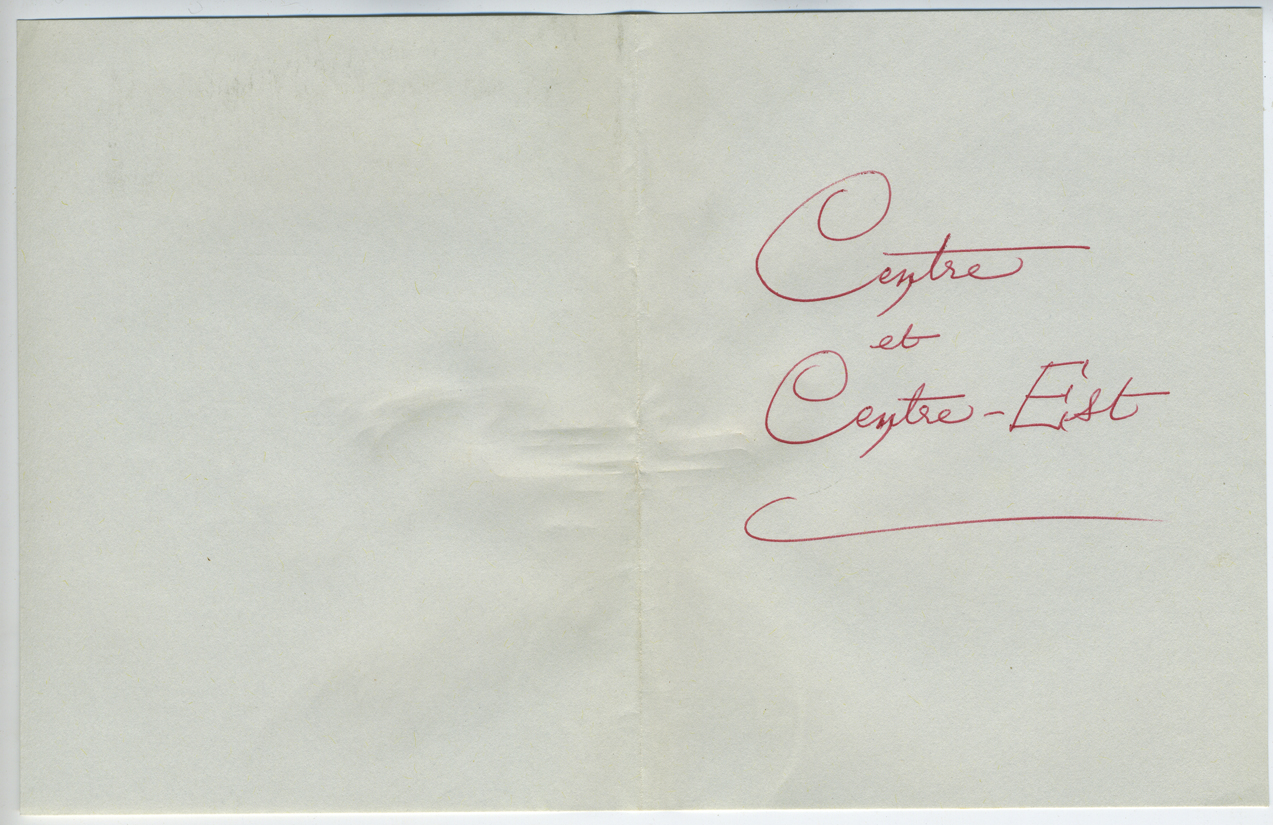 Centre
et
Centre-Est